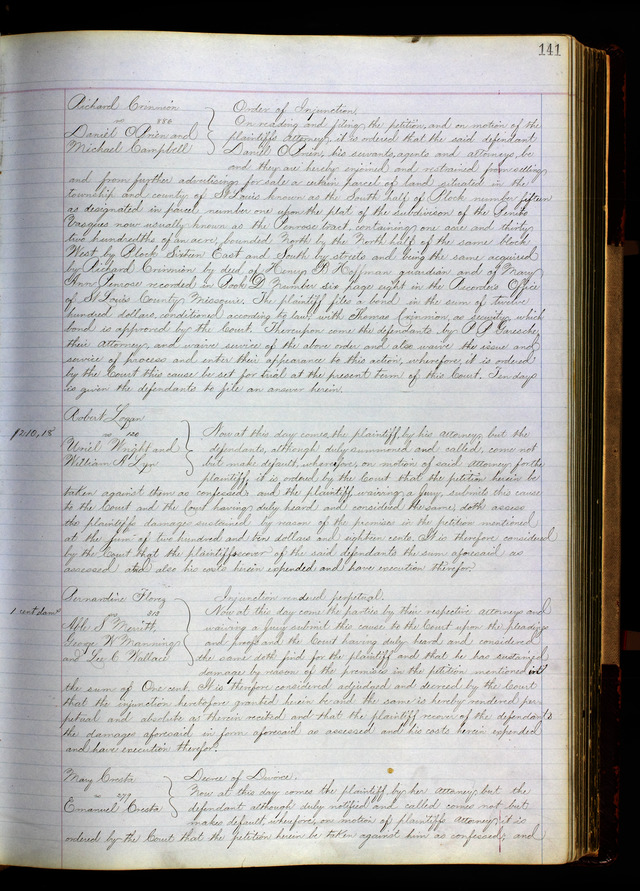 141
Richard Crinnion Order of Injunction.
vs 886 On reading and filing the petition, and on motion of the
Daniel O'Brien and plaintiffs attorney, it is ordered that the said defendant
Michael Campbell Daniel O'Brien, his servants, agents and attorneys, be
and they are hereby enjoined and restrained from selling
and from further advertising for sale a certain parcel of land situated in the
township and county of St Louis known as the South half of Block number fifteen
as designated in parcel number one upon the plat of the subdivision of the Benito
Vasques now usually known as the Penrose tract, containing one acre and thirty
two hundredths of an acre, bounded North by the North half of the same block
West by Block Sixteen East and South by streets and being the same acquired
by Richard Crinnion by deed of Henry B Hoffman guardian and of Mary
Ann Penrose recorded in Book D number six page eight in the Recorders Office
of St Louis County, Missouri. The plaintiff files a bond in the sum of twelve
hundred dollars, conditioned according to law, with Thomas Crinnion as security, which
bond is approved by the Court. Thereupon come the defendants by Garesche,
their attorney, and waive service of the above order and also waive the issue and
service of process and enter their appearance to this action, wherefore, it is ordered
by the Court this cause be set for trial at the present term of this Court. Ten days
is given the defendants to file an answer herein.
Robert Logan
$210.18 vs Now at this day comes the plaintiff by his attorney, but the
Uriel Wright and defendants, although duly summoned and called, come not
William N Lyn but make default, wherefore, on motion of said attorney for the
plaintiff, it is ordered by the Court that the petition herein be
taken against them as confessed, and the plaintiff waiving a jury, submits this cause
to the Court and the Court having duly heard and considered the same, doth assess
the plaintiffs damages sustained by reason of the premises in the petition mentioned
at the sum of two hundred and ten dollars and eighteen cents. It is therefore considered
by the Court that the plaintiff recover of the said defendants the sum aforesaid as
assessed and also his costs herein expended and have execution therefor.
Bernardine Flores Injunction rendered perpetual.
1 cent dam^s vs Now at this day come the parties by their respective attorneys and
S Merritt, waiving a jury submit this cause to the Court upon the pleadings
George W Manning and proofs and the Court having duly heard and considered
and Lee C Wallace the same doth find for the plaintiff and that he has sustained
damage by reason of the premises in the petition mentioned in
the sum of One cent. It is therefore considered adjudged and decreed by the Court
that the injunction heretofore granted herein be and the same is hereby rendered per-
petual and absolute as therein recited and that the plaintiff recover of the defendants
the damages aforesaid in form aforesaid as assessed and his costs herein expended
and have execution therefor.
Mary Cresta Decree of Divorce.
vs 299 Now at this day comes the plaintiff by her attorney but the
Emanuel Cresta defendant although duly notified and called comes not but
makes default, wherefore, on motion of plaintiffs attorney, it is
ordered by the Court that the petition herein be taken against him as confessed, and